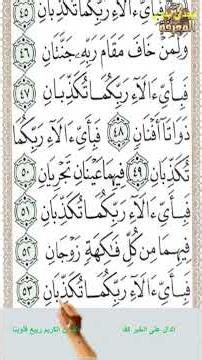 فَبِأَىِّ ءَالَآءِ رَبِّكُمَا تُكَذِّبَانِ ٤٥
وَلِمَنْ خَافَ مَقَامَ رَبِّهِۦ جَنَّتَانِ ٤٦
فَبِأَىِّ ءَالَآءِ رَبِّكُمَا تُكَذِّبَانِ ٤٧
ذَوَاتَآ أَفْنَانٍ ٤٨ فَبِأَىِّ ءَالَآءِ رَبِّكُمَا
تُكَذِّبَانِ ٤٩ فِيهِمَا عَيْنَانِ تَجْرِيَانِ ٥٠
فَبِأَىِّ ءَالَآءِ رَبِّكُمَا تُكَذِّبَانِ ٥١
فِيهِمَا مِن كُلِّ فَٰكِهَةٍ زَوْجَانِ ٥٢
فَبِأَىِّ ءَالَآءِ رَبِّكُمَا تُكَذِّبَانِ ٥٣
الكريم ربيع قلوبنا
الدال على الخير كفا